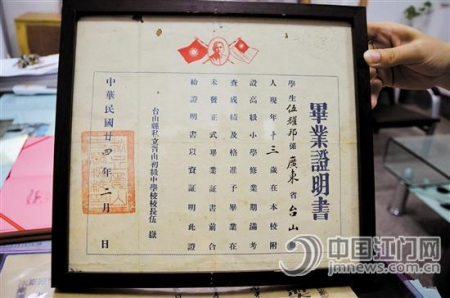 畢業證明書
學生伍耀邦係廣東省台山
人現年十三歲在本校附
設高級小學修業期滿考
查成績及格准予畢業在
未發正式畢業證書前合
給證明書以資證明此證
台山縣私立
初級中學校校長伍
中華民國廿四年二月 日
中国江门网
jmnews.com.cn